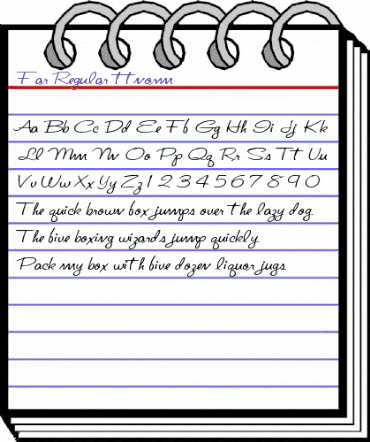 Far Regular ttnorm
Aa Bb Cc Dd Ee Ff Gg Hh Ii Jj Kk
Ll Mm Nn Oo Pp Qq Rr Ss Tt Uu
Vv Ww Xx Yy Zz 1 2 3 4 5 6 7 8 9 0
The quick brown fox jumps over the lazy dog.
The five boxing wizards jump quickly.
Pack my box with five dozen liquor jugs.